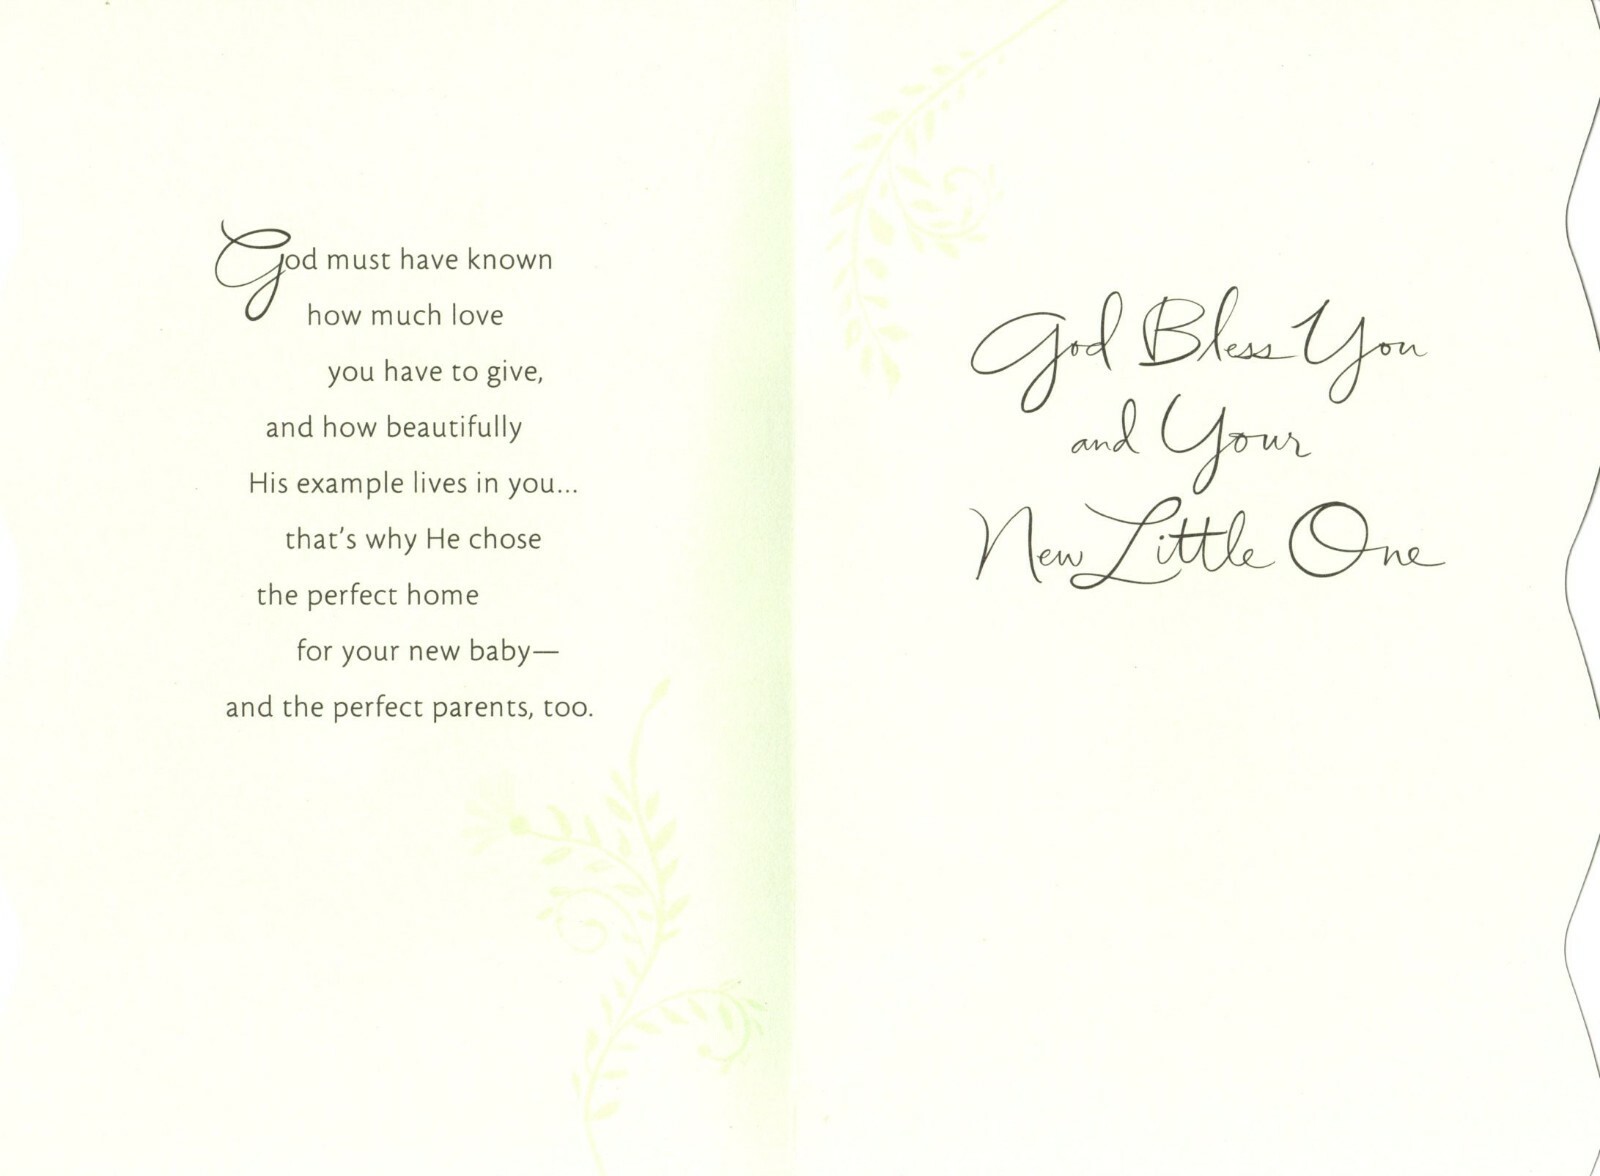 God must have known
how much love
you have to give,
and how beautifully
His example lives in you...
that's why He chose
the perfect home
for your new baby—
and the perfect parents, too.
God Bless You
and Your
New Little One